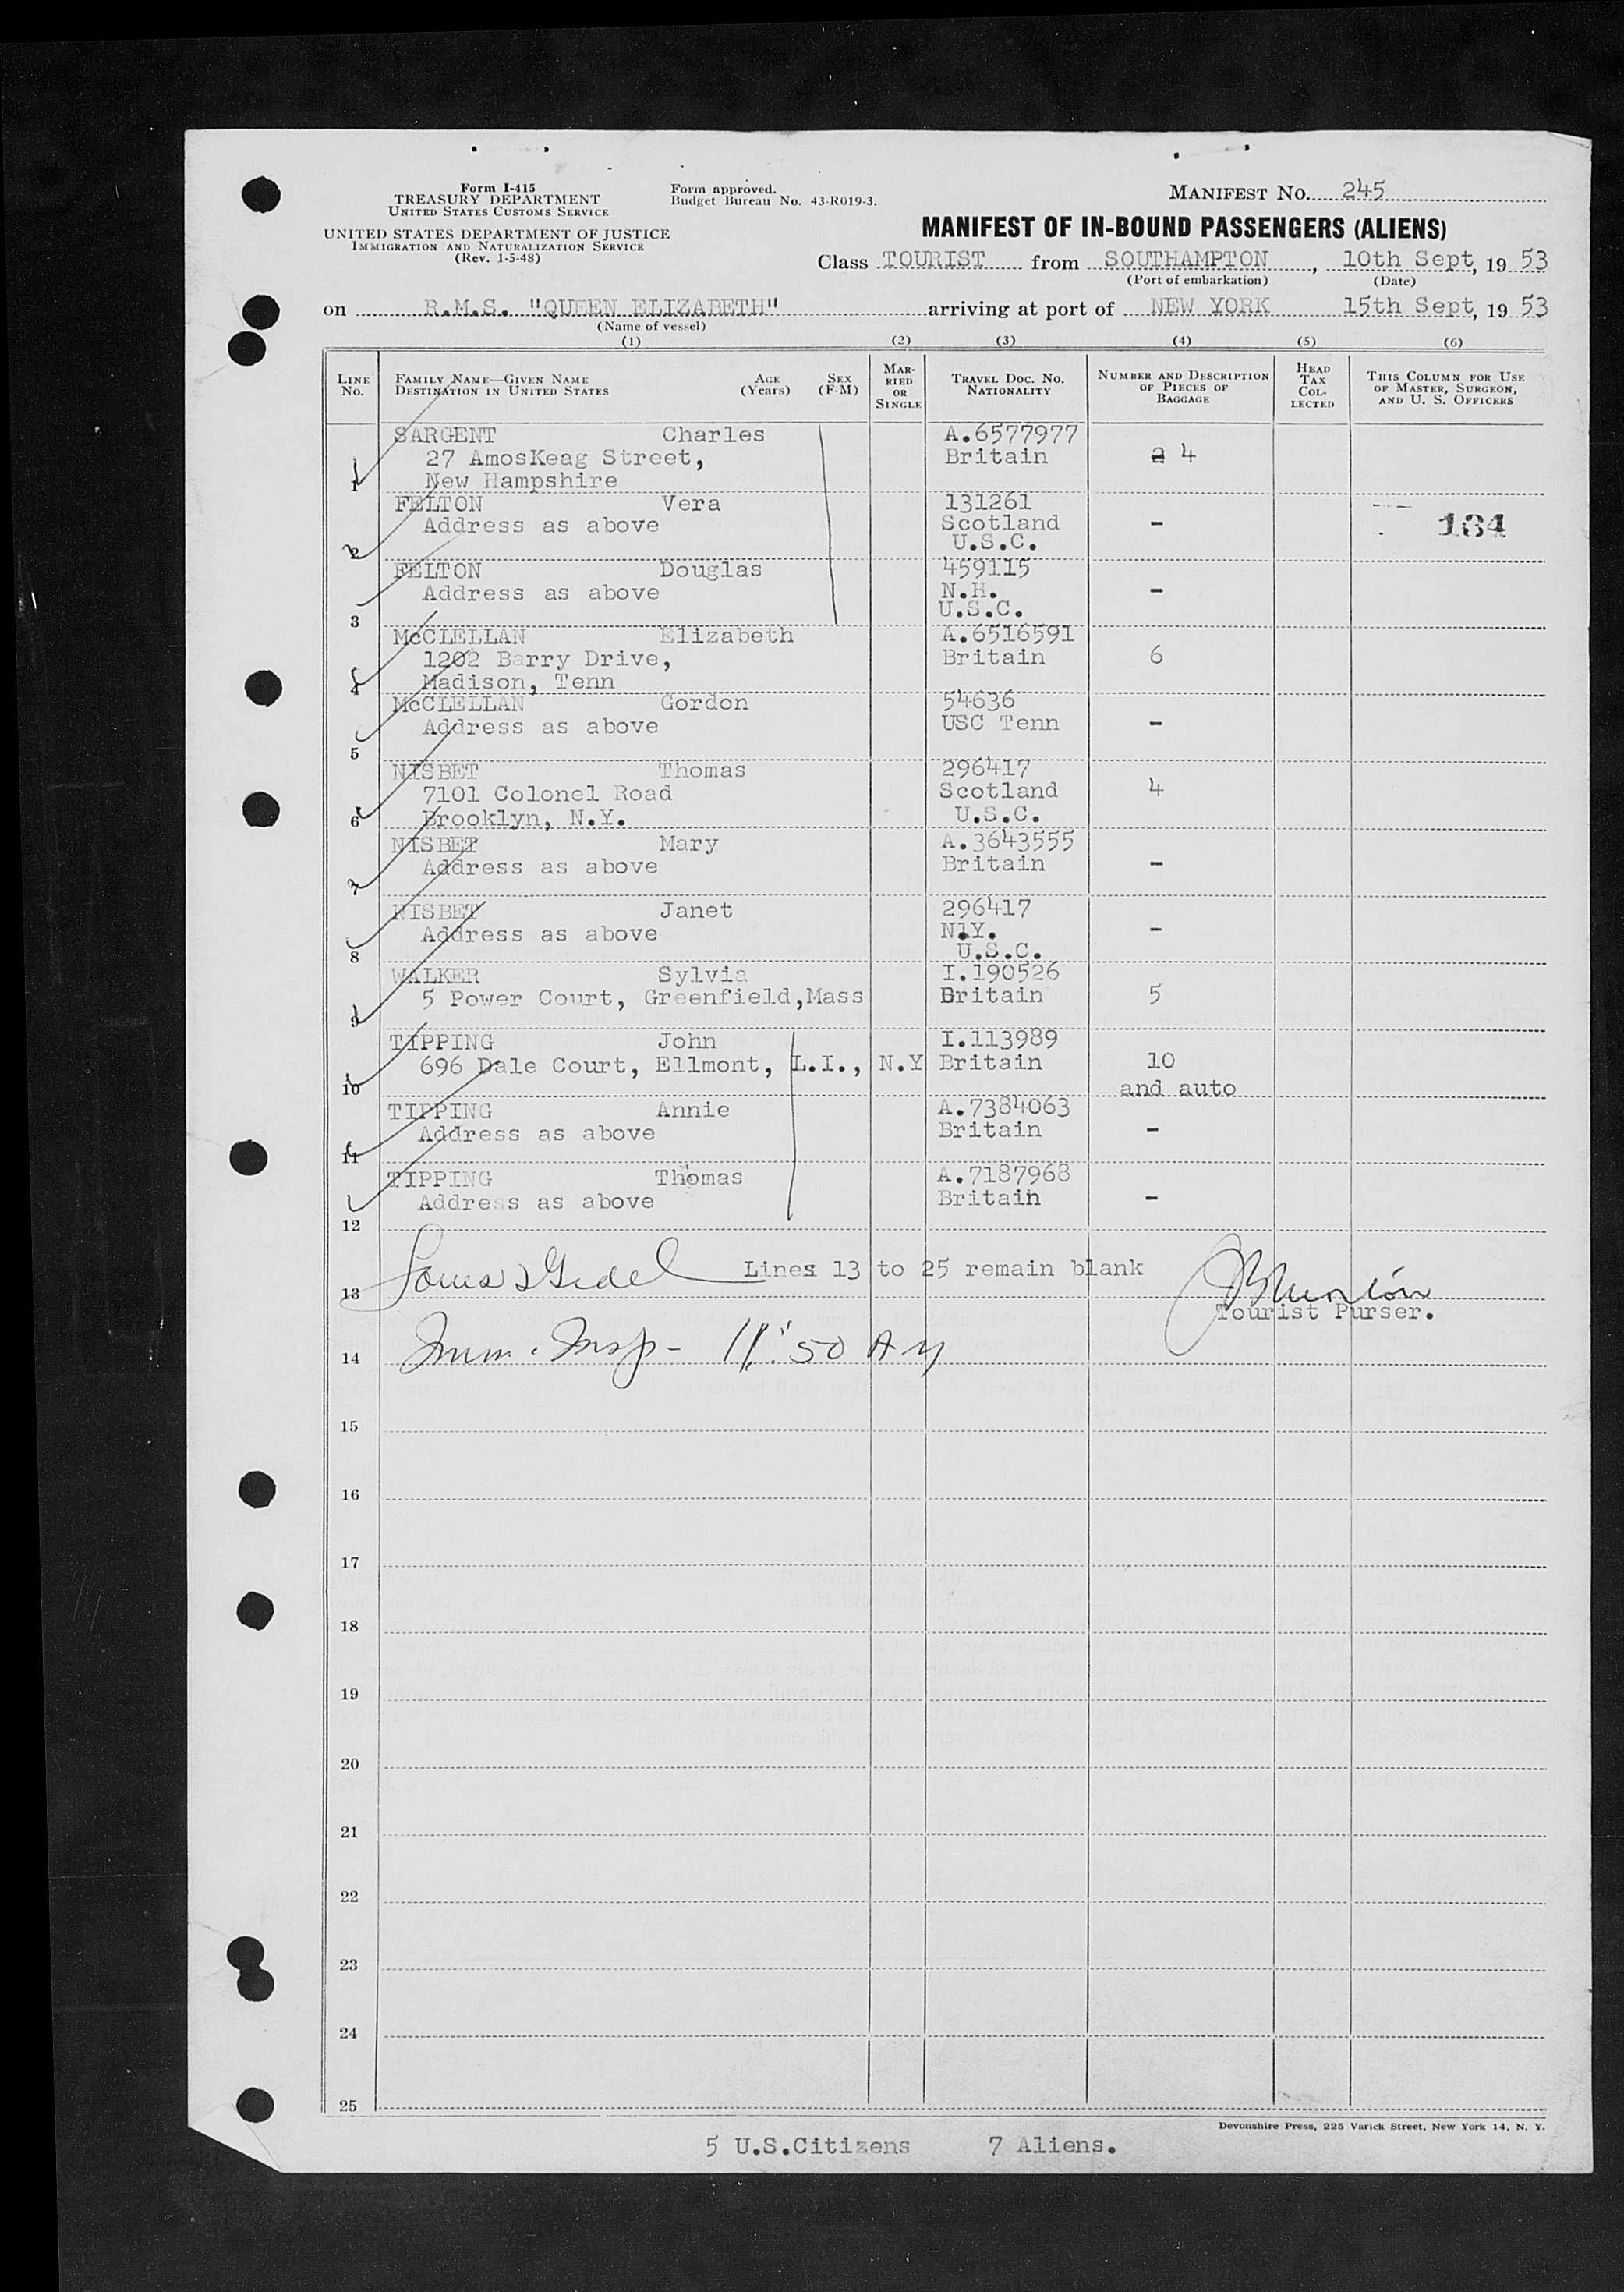 Form I-415
TREASURY DEPARTMENT
UNITED STATES CUSTOMS SERVICE
UNITED STATES DEPARTMENT OF JUSTICE
IMMIGRATION AND NATURALIZATION SERVICE
(Rev. 1-5-48)
Form approved.
Budget Bureau No. 43-R019-3.
MANIFEST NO. 245
MANIFEST OF IN-BOUND PASSENGERS (ALIENS)
Class TOURIST from SOUTHAMPTON, 10th Sept, 19 53
(Port of embarkation) (Date)
on R.M.S. "QUEEN ELIZABETH" arriving at port of NEW YORK 15th Sept, 19 53
(Name of vessel)
(1) (2) (3) (4) (5) (6)
LINE NO. FAMILY NAME—GIVEN NAME DESTINATION IN UNITED STATES AGE (Years) SEX (F-M) MARRIED OR SINGLE TRAVEL DOC. NO. NATIONALITY NUMBER AND DESCRIPTION OF PIECES OF BAGGAGE HEAD TAX COLLECTED THIS COLUMN FOR USE OF MASTER, SURGEON, AND U. S. OFFICERS
SARGENT Charles A.6577977
27 AmosKeag Street, Britain 2 4
1 New Hampshire
FELTON Vera 131261
Address as above Scotland - 184
2 U.S.C.
FELTON Douglas 459115
Address as above N.H. -
3 U.S.C.
McCLELLAN Elizabeth A.6516591
1202 Barry Drive, Britain 6
4 Madison, Tenn
McCLELLAN Gordon 54636
Address as above USC Tenn -
5
NISBET Thomas 296417
7101 Colonel Road Scotland 4
6 Brooklyn, N.Y. U.S.C.
NISBET Mary A.3643555
Address as above Britain -
7
NISBET Janet 296417
Address as above N.Y. -
8 U.S.C.
WALKER Sylvia I.190526
5 Power Court, Greenfield,Mass Britain 5
9
TIPPING John I.113989
696 Dale Court, Ellmont, L.I., N.Y Britain 10
10 and auto
TIPPING Annie A.7384063
Address as above Britain -
11
TIPPING Thomas A.7187968
Address as above Britain -
12
Lines 13 to 25 remain blank
13
Tourist Purser.
14 Imm. Insp - 11:50 AM
15
16
17
18
19
20
21
22
23
24
25
Devonshire Press, 225 Varick Street, New York 14, N. Y.
5 U.S.Citizens 7 Aliens.